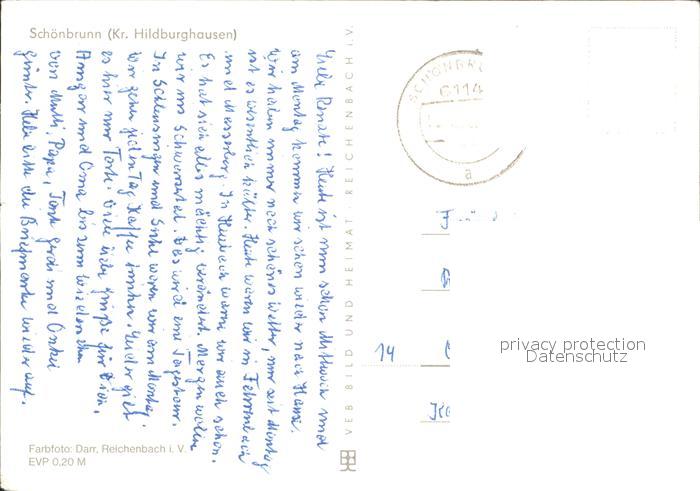 Schönbrunn (Kr. Hildburghausen)
Liebe Renate! Heute ist nun schon Mittwoch und
am Montag kommen wir schon wieder nach Hause.
Wir haben immer noch schönes Wetter, nur seit Montag
ist es wesentlich kälter. Heute waren wir in Fehrenbach
und Masserberg. In Heubach waren wir auch schon.
Es hat sich alles mächtig verändert. Morgen wollen
wir ins Schwarzatal. Das wird eine Tagestour.
In Schleusingen und Suhl waren wir am Montag.
Wir gehen jeden Tag Kaffee trinken. Leider gibt
es hier nur Torte. Viele liebe Grüße für Dich,
und Oma bis zum Wiedersehen
von Mutti, Papa, Tante Gerda und Onkel
Hebe bitte die Briefmarke wieder auf.
VEB BILD UND HEIMAT REICHENBACH i. V.
SCHÖNBRU
6114
a
14
privacy protection
Datenschutz
Farbfoto: Darr, Reichenbach i. V.
EVP 0,20 M